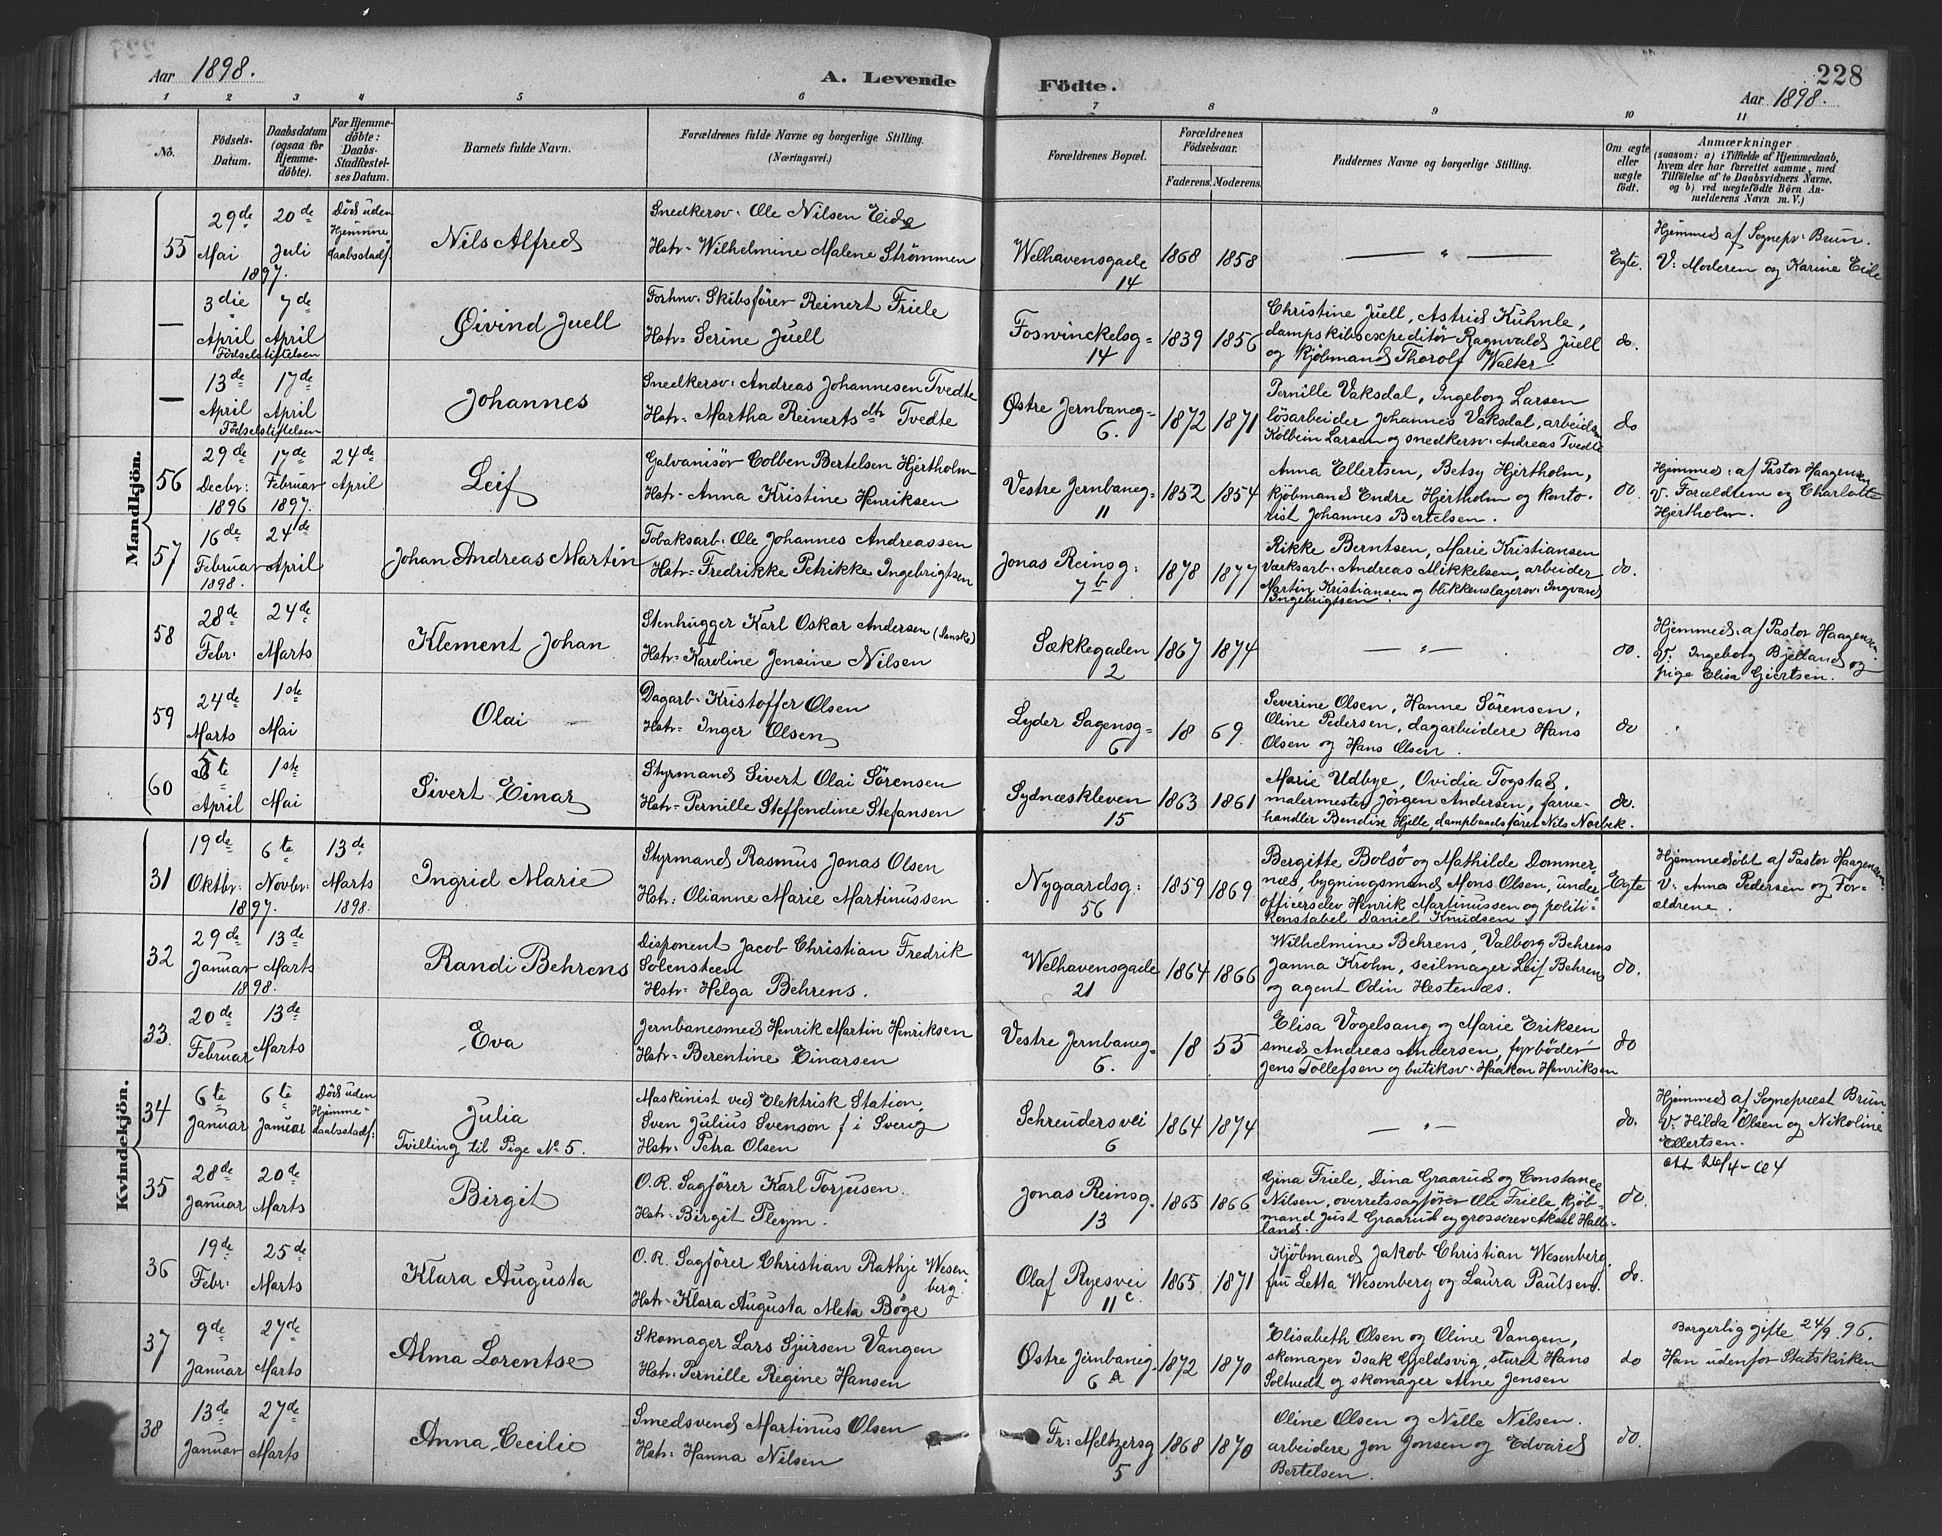 228
Aar 1898. A. Levende Födte. Aar 1898.
1 2 3 4 5 6 7 8 9 10 11
No.
Födsels-
Datum.
Daabsdatum
(ogsaa for
Hjemme-
döbte).
For Hjemme-
döbte:
Daabs-
Stadfæstel-
ses Datum.
Barnets fulde Navn.
Forældrenes fulde Navne og borgerlige Stilling.
(Næringsvei.)
Forældrenes Bopæl.
Forældrenes
Födselsaar.
Faderens. Moderens.
Faddernes Navne og borgerlige Stilling.
Om ægte
eller
uægte
födt.
Anmærkninger
(saasom: a) i Tilfælde af Hjemmedaab,
hvem der har forrettet samme, med
Tilföielse af to Daabsvidners Navne.
og b) ved uægtefödte Börn An-
melderens Navn m. V.)
Mandkjön.
55
29de
Mai
20de
Juli
1897.
Död uden
Hjemme
daabsstadf.
Nils Alfred
Snedkersv: Ole Nilsen Eide
Hstr- Wilhelmine Malene Strømmen
Welhavensgade
14
1868 1858
— " —
Egte.
Hjemmed af Sognepr: Brun.
V: Moderen og Karine Eide
—
3die
April
7de
April
Födselsstiftelsen
Øivind Juell
Forhnv: Skibsfører Reinert Friele
Hstr- Serine Juell
Foswinckelsg=
14
1839 1856
Christine Juell, Astrid Kuhnle,
dampskibsexpeditör Ragnvald Juell
og Kjöbmand Thorolf Walter
do.
—
13de
April
17de
April
Födselsstiftelsen
Johannes
Snedkersv: Andreas Johannesen Tvedte
Hstr- Martha Reinertsdtr Tvedte
Østre Jernbaneg=
6.
1872 1871
Pernille Vaksdal, Ingeborg Larsen
lösarbeider Johannes Vaksdal, arbeider
Kolbein Larsen og snedkersv: Andreas Tvedte
do
56
29de
Decbr:
1896
17de
Februar
1897.
24de
April
Leif
Galvanisör Colben Bertelsen Hjertholm
Hstr- Anna Kristine Henriksen
Vestre Jernbaneg=
11
1852 1854
Anna Ellertsen, Betsy Hjertholm,
kjöbmand Endre Hjertholm og konto-
rist Johannes Bertelsen.
do.
Hjemmed: af Pastor Haagensen
V. Forældrene og Charlotte
Hjertholm.
57
16de
Februar
1898.
24de
April
Johan Andreas Martin
Tobaksarb: Ole Johannes Andreassen
Hstr- Fredrikke Petrikke Ingebrigtsen
Jonas Reinsg:
7b
1878 1877
Rikke Berntsen, Marie Kristiansen
Værksarb: Andreas Mikkelsen, arbeider
Martin Kristiansen og blikkenslagersv: Ingvard
Ingebrigtsen.
do.
58
28de
Febr:
24de
Marts
Klement Johan
Stenhugger Karl Oskar Andersen (Svenske)
Hstr- Karoline Jensine Nilsen
Sækkegaden
2
1867 1874
— " —
do.
Hjemmed: af Pastor Haagensen.
V: Ingeborg Bjelland og
pige Elisa Gjertsen.
59
24de
Marts
1ste
Mai
Olai
Dagarb- Kristoffer Olsen
Hstr- Inger Olsen
Lyder Sagensg=
6
18 69
Severine Olsen, Hanne Sörensen,
Oline Pedersen, dagarbeidere Hans
Olsen og Hans Olsen.
do
60
5te
April
1ste
Mai
Sivert Einar
Styrmand Sivert Olai Sörensen
Hstr- Pernille Steffendine Stefansen
Sydnæskleven
15
1863 1861
Marie Udbye, Ovidia Togstad,
malermester Jörgen Andersen, farve-
handler Bendix Hjelle, dampbaadsföret Nils Norbek.
do.
Kvindekjön.
31
19de
Oktbr:
6te
Novbr:
1897.
13de
Marts
1898.
Ingrid Marie
Styrmand Rasmus Jonas Olsen
Hstr: Olianne Marie Martinussen
Nygaardsg:
56
1859 1869
Bergitte Bolsö og Mathilde Dommer-
næs, bygningsmand Mons Olsen, under
officerselev Henrik Martinussen og politi-
konstabel Daniel Knudsen
Egte
Hjemmedöbt af Pastor Haagensen.
V: Anna Pedersen og For-
ældrene.
32
29de
Januar
1898.
13de
Marts
Randi Behrens
Disponent Jacob Christian Fredrik
Solensteen
Hstr- Helga Behrens.
Welhavensgade
21
1864 1866
Wilhelmine Behrens, Valborg Behrens
Janna Krohn, seilmager Leif Behrens
og agent Odin Hestenæs.
do.
33.
20de
Februar
13de
Marts
Eva
Jernbanesmed Henrik Martin Henriksen
Hstr- Berentine Einarsen
Vestre Jernbaneg=
6.
18 55
Elisa Vogelsang og Marie Eriksen
smed Andreas Andersen, fyrböder
Jens Tollefsen og butiksv- Haakon Henriksen
do
34
6te
Januar
6te
Januar
Död uden
Hjemme-
daabsstadf:
Julia
Tvilling til Pige No 5.
Maskinist ved Elektrisk Station,
Sven Julius Svenson f i Sverig
Hstr- Petra Olsen
Schreudersvei
6
1864 1874
— " —
do.
Hjemmed af Sogneprest Brun
V. Hilda Olsen og Nikoline
Ellertsen.
35
28de
Januar
20de
Marts
Birgit
O.R. Sagförer Karl Torjusen.
Hstr- Birgit Pleym.
Jonas Reinsg.
13
1865 1866
Gina Friele, Dina Graarud og Constance
Nilsen, overretssagförer Ole Friele, kjöb-
mand Just Graarud og grosserer Aksel Halle-
land.
do.
Att 26/4-04
36
19de
Febr:
25de
Marts
Klara Augusta
O.R. Sagförer Christian Rathje Wesen
berg.
Hstr- Klara Augusta Meta Böge
Olaf Ryesvei
11c.
1865. 1871
Kjöbmand Jakob Christian Wesenberg.
fru Letta Wesenberg og Laura Paulsen.
do.
37
9de
Januar
27de
Marts
Alma Lorentse
Skomager Lars Sjursen Vangen
Hstr: Pernille Regine Hansen
Østre Jernbaneg.
6 A
1872 1870
Elisabeth Olsen og Oline Vangen,
skomager Isak Gjeldsvig, sturet Hans
Soltvedt og skomager Arne Jensen
do
Borgerlig gifte 24/9 96.
Han udenfor Statskirken
38
13de
Januar
27de
Marts
Anna Cecilie
Smedsvend Martinus Olsen
Hstr: Hanna Nilsen
Fr: Meltzersg
5
1868 1870
Oline Olsen og Nille Nilsen.
arbeidere Jon Jonsen og Edvard
Bertelsen.
do.